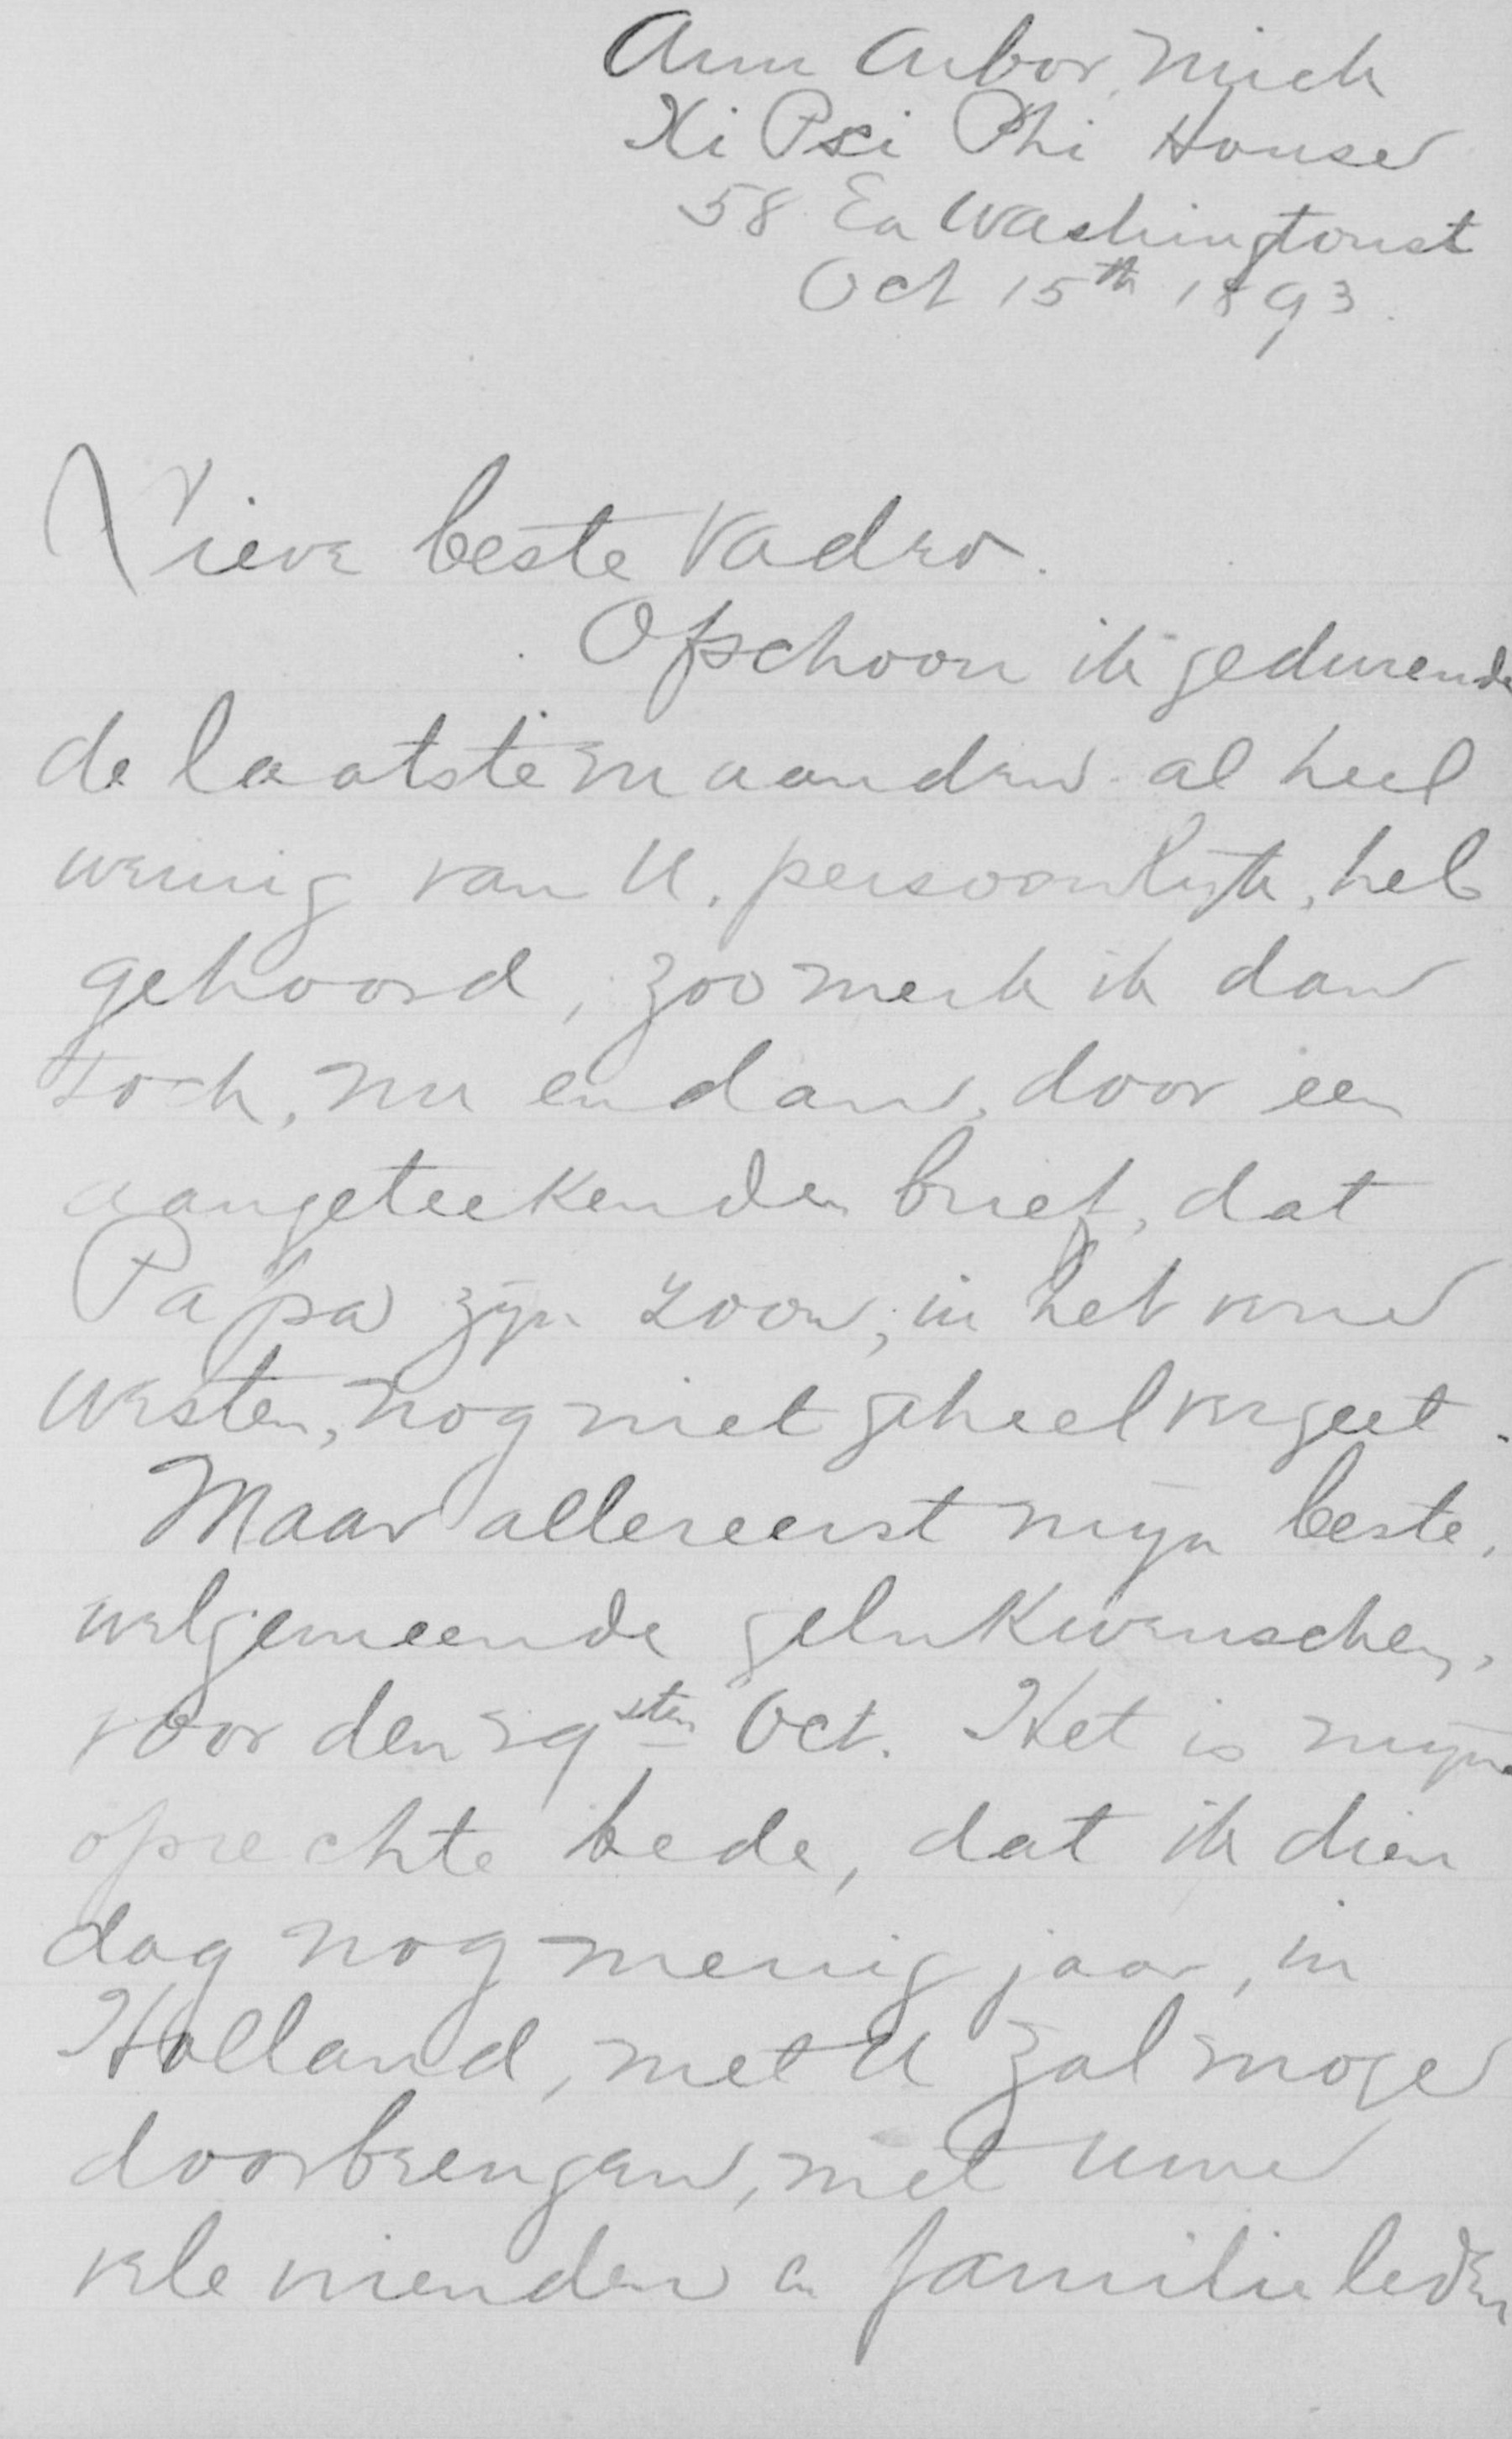 Ann Arbor, Mich
Xi Psi Phi House
58 Ea Washingtonst
Oct 15th 1893.
Lieve beste Vader.
Ofschoon ik gedurende
de laatste maanden al heel
weinig van U. persoonlijk, heb
gehoord, zoo merk ik dan
toch, nu en dan, door een
aangeteekenden brief, dat
Papa zijn zoon, in het verre
westen, nog niet geheel vergeet.
Maar allereerst mijn beste,
welgemeende gelukwenschen,
voor den 29sten Oct. Het is mijne
oprechte bede, dat ik dien
dag nog menig jaar, in
Holland, met U zal mogen
doorbrengen, met uwe
vele vrienden en familieleden